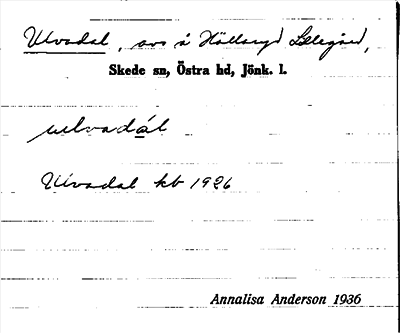 Ulvadal, avs å Hällaryd Lillegård,
Skede sn, Östra hd, Jönk. l.
ulvadál
Ulvadal kb 1926
Annalisa Anderson 1936